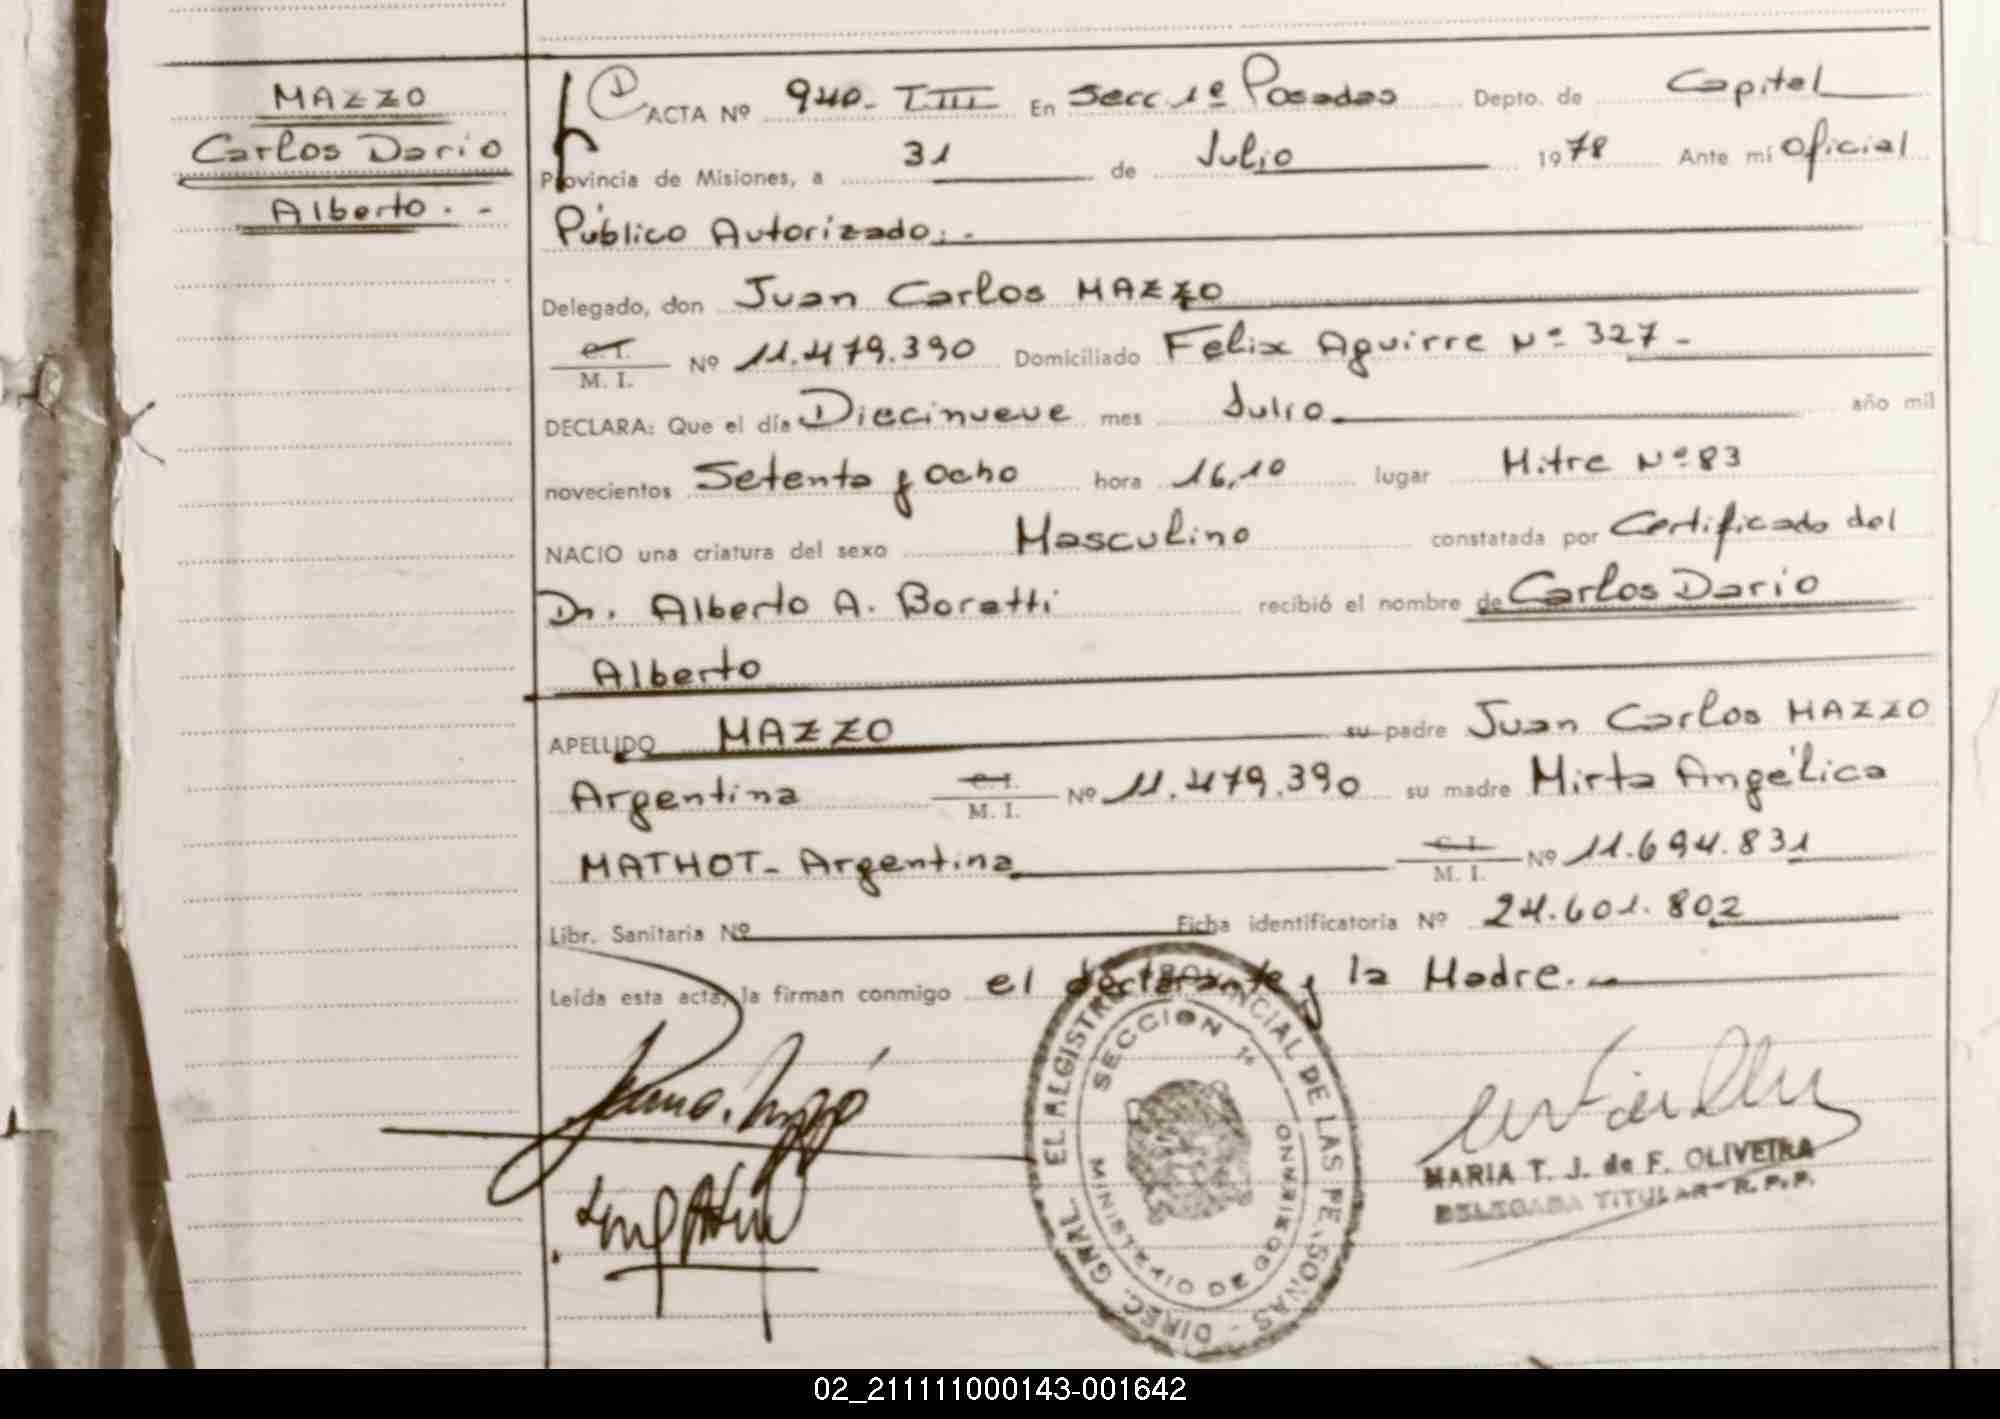 MAZZO
Carlos Dario
Alberto. -
ACTA Nº 940- T III En Secc 1º Posadas Depto. de Capital
Provincia de Misiones, a 31 de Julio 1978 Ante mí Oficial
Público Autorizado. -
Delegado, don Juan Carlos MAZZO
C. I.
M. I. Nº 11.479.390 Domiciliado Felix Aguirre Nº 327 -
DECLARA: Que el día Diecinueve mes Julio año mil
novecientos Setenta y ocho hora 16,10 lugar Mitre Nº 83
NACIO una criatura del sexo Masculino constatada por Certificado del
Dr. Alberto A. Boratti recibió el nombre de Carlos Dario
Alberto
APELLIDO MAZZO su padre Juan Carlos MAZZO
Argentina C. I.
M. I. Nº 11.479.390 su madre Mirta Angélica
MATHOT- Argentina C. I.
M. I. Nº 11.694.831
Libr. Sanitaria Nº Ficha identificatoria Nº 24.601.802
Leída esta acta, la firman conmigo el declarante y la Madre. -
SECCION 1ª
MINISTERIO DE GOBIERNO
MARIA T. J. de F. OLIVEIRA
DELEGADA TITULAR R. P. P.
02_211111000143-001642